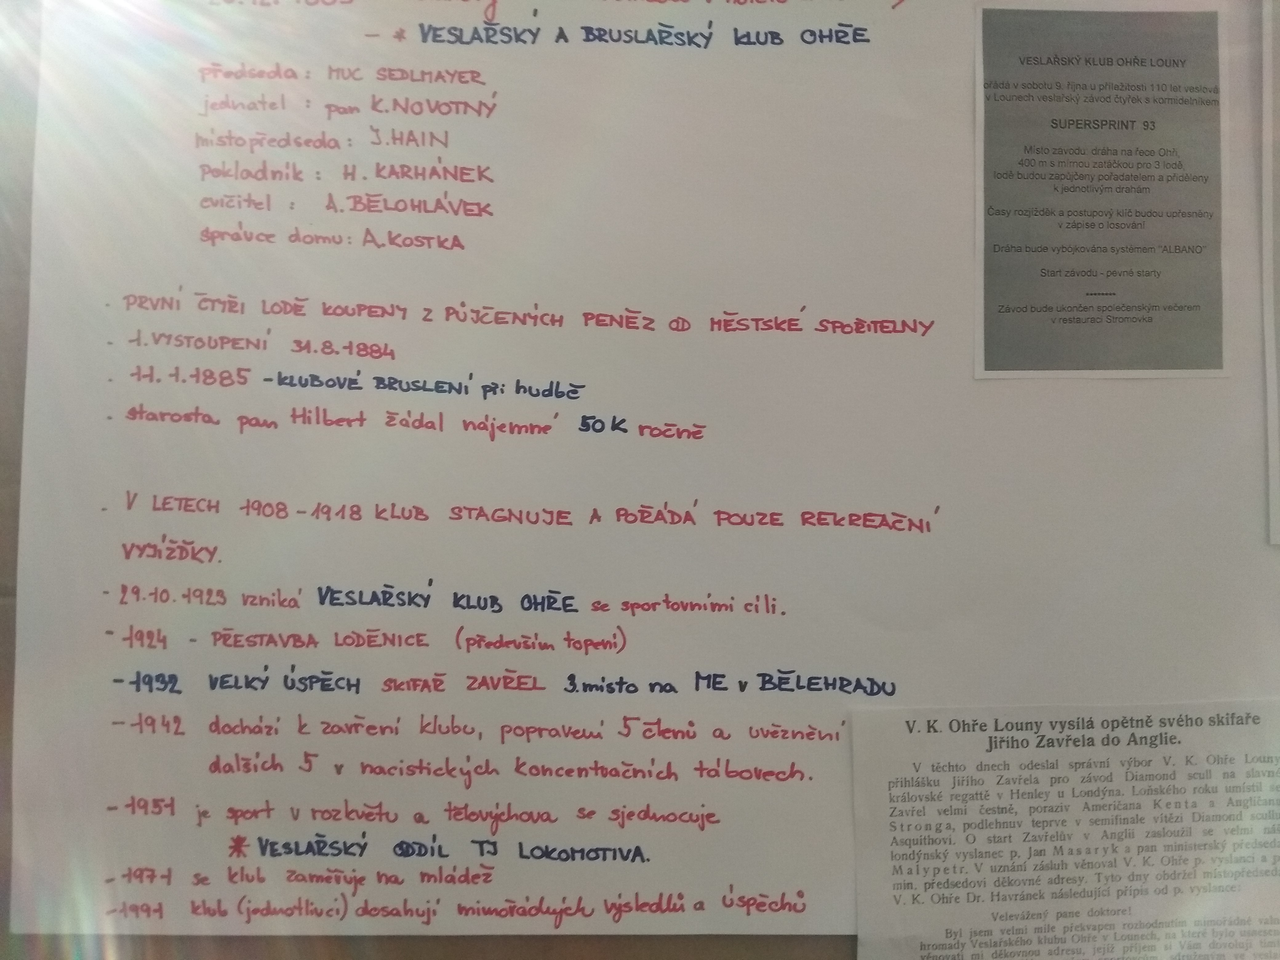 - * VESLAŘSKÝ A BRUSLAŘSKÝ KLUB OHŘE
předseda: MUC SEDLMAYER
jednatel: pan K. NOVOTNÝ
místopředseda: J. HAIN
pokladník: H. KARHÁNEK
cvičitel: A. BĚLOHLÁVEK
správce domu: A. KOSTKA
. PRVNÍ ČTYŘI LODĚ KOUPENY Z PŮJČENÝCH PENĚZ OD MĚSTSKÉ SPOŘITELNY
. 1. VYSTOUPENÍ 31.8.1884
. 11.1.1885 - KLUBOVÉ BRUSLENÍ při hudbě
. starosta pan Hilbert žádal nájemné 50K ročně
. V LETECH 1908 - 1918 KLUB STAGNUJE A POŘÁDÁ POUZE REKREAČNÍ
VYJÍŽĎKY.
- 29.10.1923 vzniká VESLAŘSKÝ KLUB OHŘE se sportovními cíli.
- 1924 - PŘESTAVBA LODĚNICE (především topení)
- 1932 VELKÝ ÚSPĚCH SKIFAŘ ZAVŘEL 3. místo na ME v BĚLEHRADU
- 1942 dochází k zavření klubu, popravení 5 členů a uvěznění
dalších 5 v nacistických koncentračních táborech.
- 1951 je sport v rozkvětu a tělovýchova se sjednocuje
* VESLAŘSKÝ ODDÍL TJ LOKOMOTIVA.
- 1971 se klub zaměřuje na mládež
- 1991 klub (jednotlivci) dosahují mimořádných výsledků a úspěchů
VESLAŘSKÝ KLUB OHŘE LOUNY
pořádá v sobotu 9. října u příležitosti 110 let veslová
v Lounech veslařský závod čtyřek s kormidelníkem
SUPERSPRINT 93
Místo závodu: dráha na řece Ohři,
400 m s mírnou zatáčkou pro 3 lodě,
lodě budou zapůjčeny pořadatelem a přiděleny
k jednotlivým drahám
Časy rozjížděk a postupový klíč budou upřesněny
v zápise o losování
Dráha bude vybójkována systémem "ALBANO"
Start závodu - pevné starty
********
Závod bude ukončen společenským večerem
v restauraci Stromovka
V. K. Ohře Louny vysílá opětně svého skifaře
Jiřího Zavřela do Anglie.
V těchto dnech odeslal správní výbor V. K. Ohře Louny
přihlášku Jiřího Zavřela pro závod Diamond scull na slavné
královské regattě v Henley u Londýna. Loňského roku umístil se
Zavřel velmi čestně, poraziv Američana Kenta a Angličana
Stronga, podlehnuv teprve v semifinale vítězi Diamond scullu
Asquithovi. O start Zavřelův v Anglii zasloužil se velmi náš
londýnský vyslanec p. Jan Masaryk a pan ministerský předseda
Malypetr. V uznání zásluh věnoval V. K. Ohře p. vyslanci a p.
min. předsedovi děkovné adresy. Tyto dny obdržel místopředseda
V. K. Ohře Dr. Havránek následující přípis od p. vyslance:
Velevážený pane doktore!
Byl jsem velmi mile překvapen rozhodnutím mimořádné valné
hromady Veslařského klubu Ohře v Lounech, na které bylo usneseno
věnovati mi děkovnou adresu, jejíž příjem si Vám dovoluji tímto